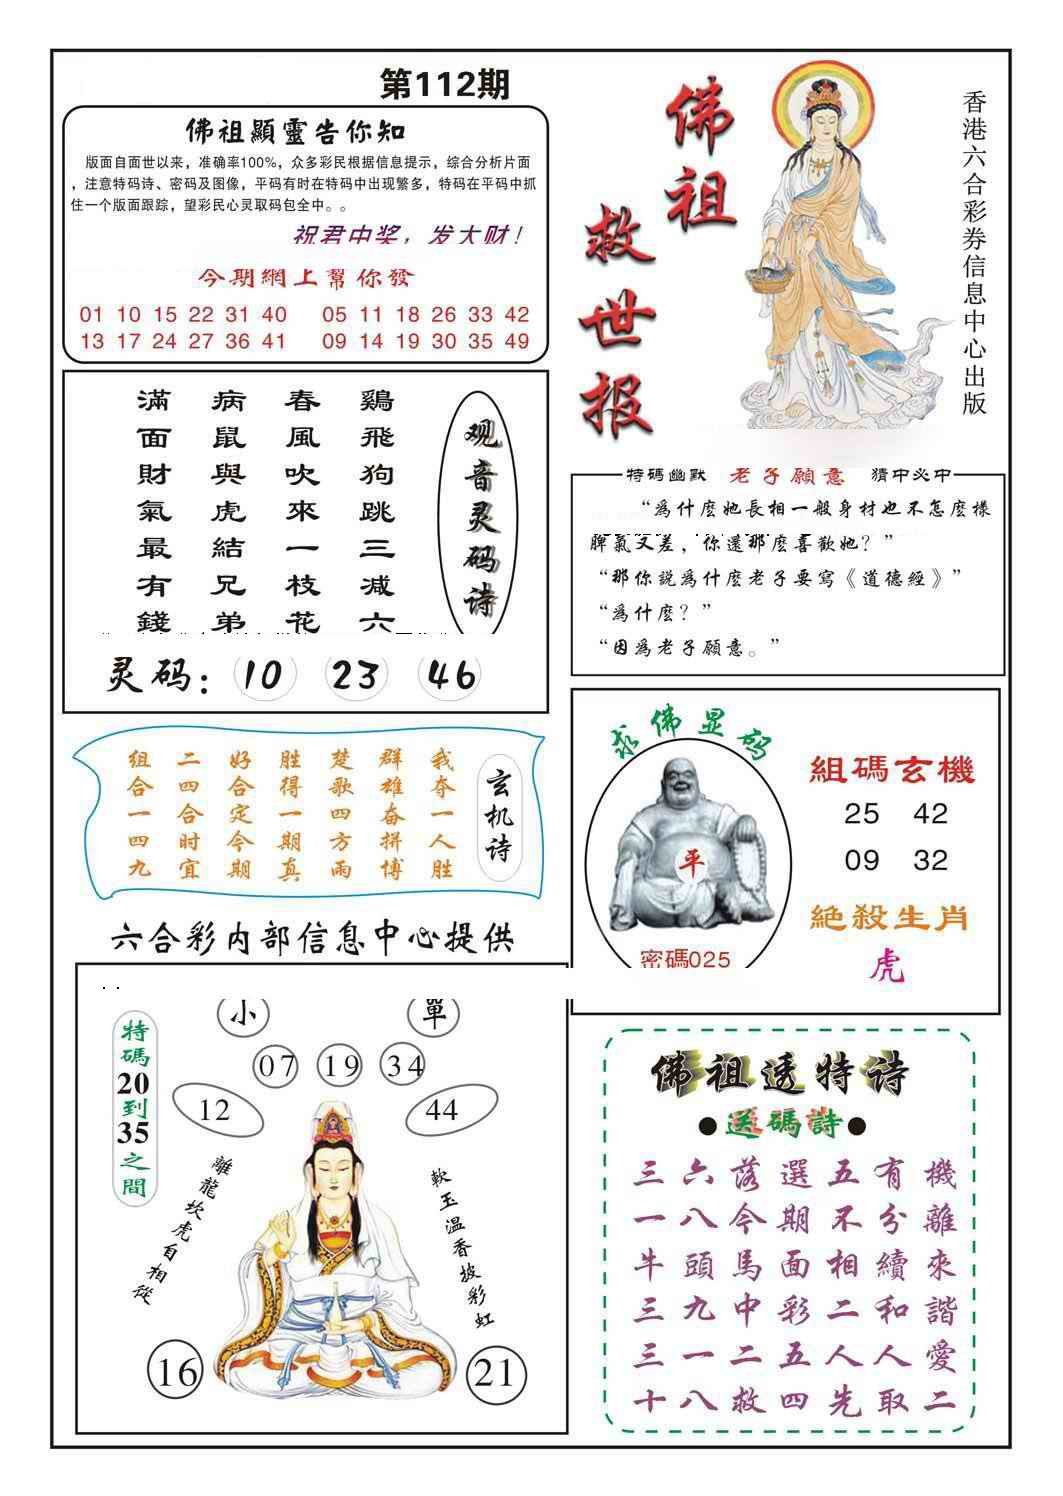 第112期
佛祖顯靈告你知
版面自面世以来，准确率100%，众多彩民根据信息提示，综合分析片面
，注意特码诗、密码及图像，平码有时在特码中出现繁多，特码在平码中抓
住一个版面跟踪，望彩民心灵取码包全中。。
祝君中奖，发大财！
今期網上幫你發
01 10 15 22 31 40 05 11 18 26 33 42
13 17 24 27 36 41 09 14 19 30 35 49
佛祖
救世报
香港六合彩券信息中心出版
观音灵码诗
鷄飛狗跳三减六
春風吹來一枝花
病鼠與虎結兄弟
滿面財氣最有錢
灵码：10 23 46
特碼幽默 老子願意 猜中必中
“爲什麽她長相一般身材也不怎麽樣
脾氣又差，你還那麽喜歡她？”
“那你説爲什麽老子要寫《道德經》”
“爲什麽？”
“因爲老子願意。”
玄机诗
我夺一人胜
群雄奋拼博
楚歌四方雨
胜得一期真
好合定今期
二四合时宜
组合一四九
求佛显码
平
密碼025
組碼玄機
25 42
09 32
絶殺生肖
虎
六合彩内部信息中心提供
特碼20到35之間
小 單
07 19 34
12 44
離龍坎虎自相從
軟玉温香披彩虹
16 21
佛祖透特诗
●送碼詩●
三六落選五有機
一八今期不分離
牛頭馬面相續來
三九中彩二和諧
三一二五人人愛
十八救四先取二